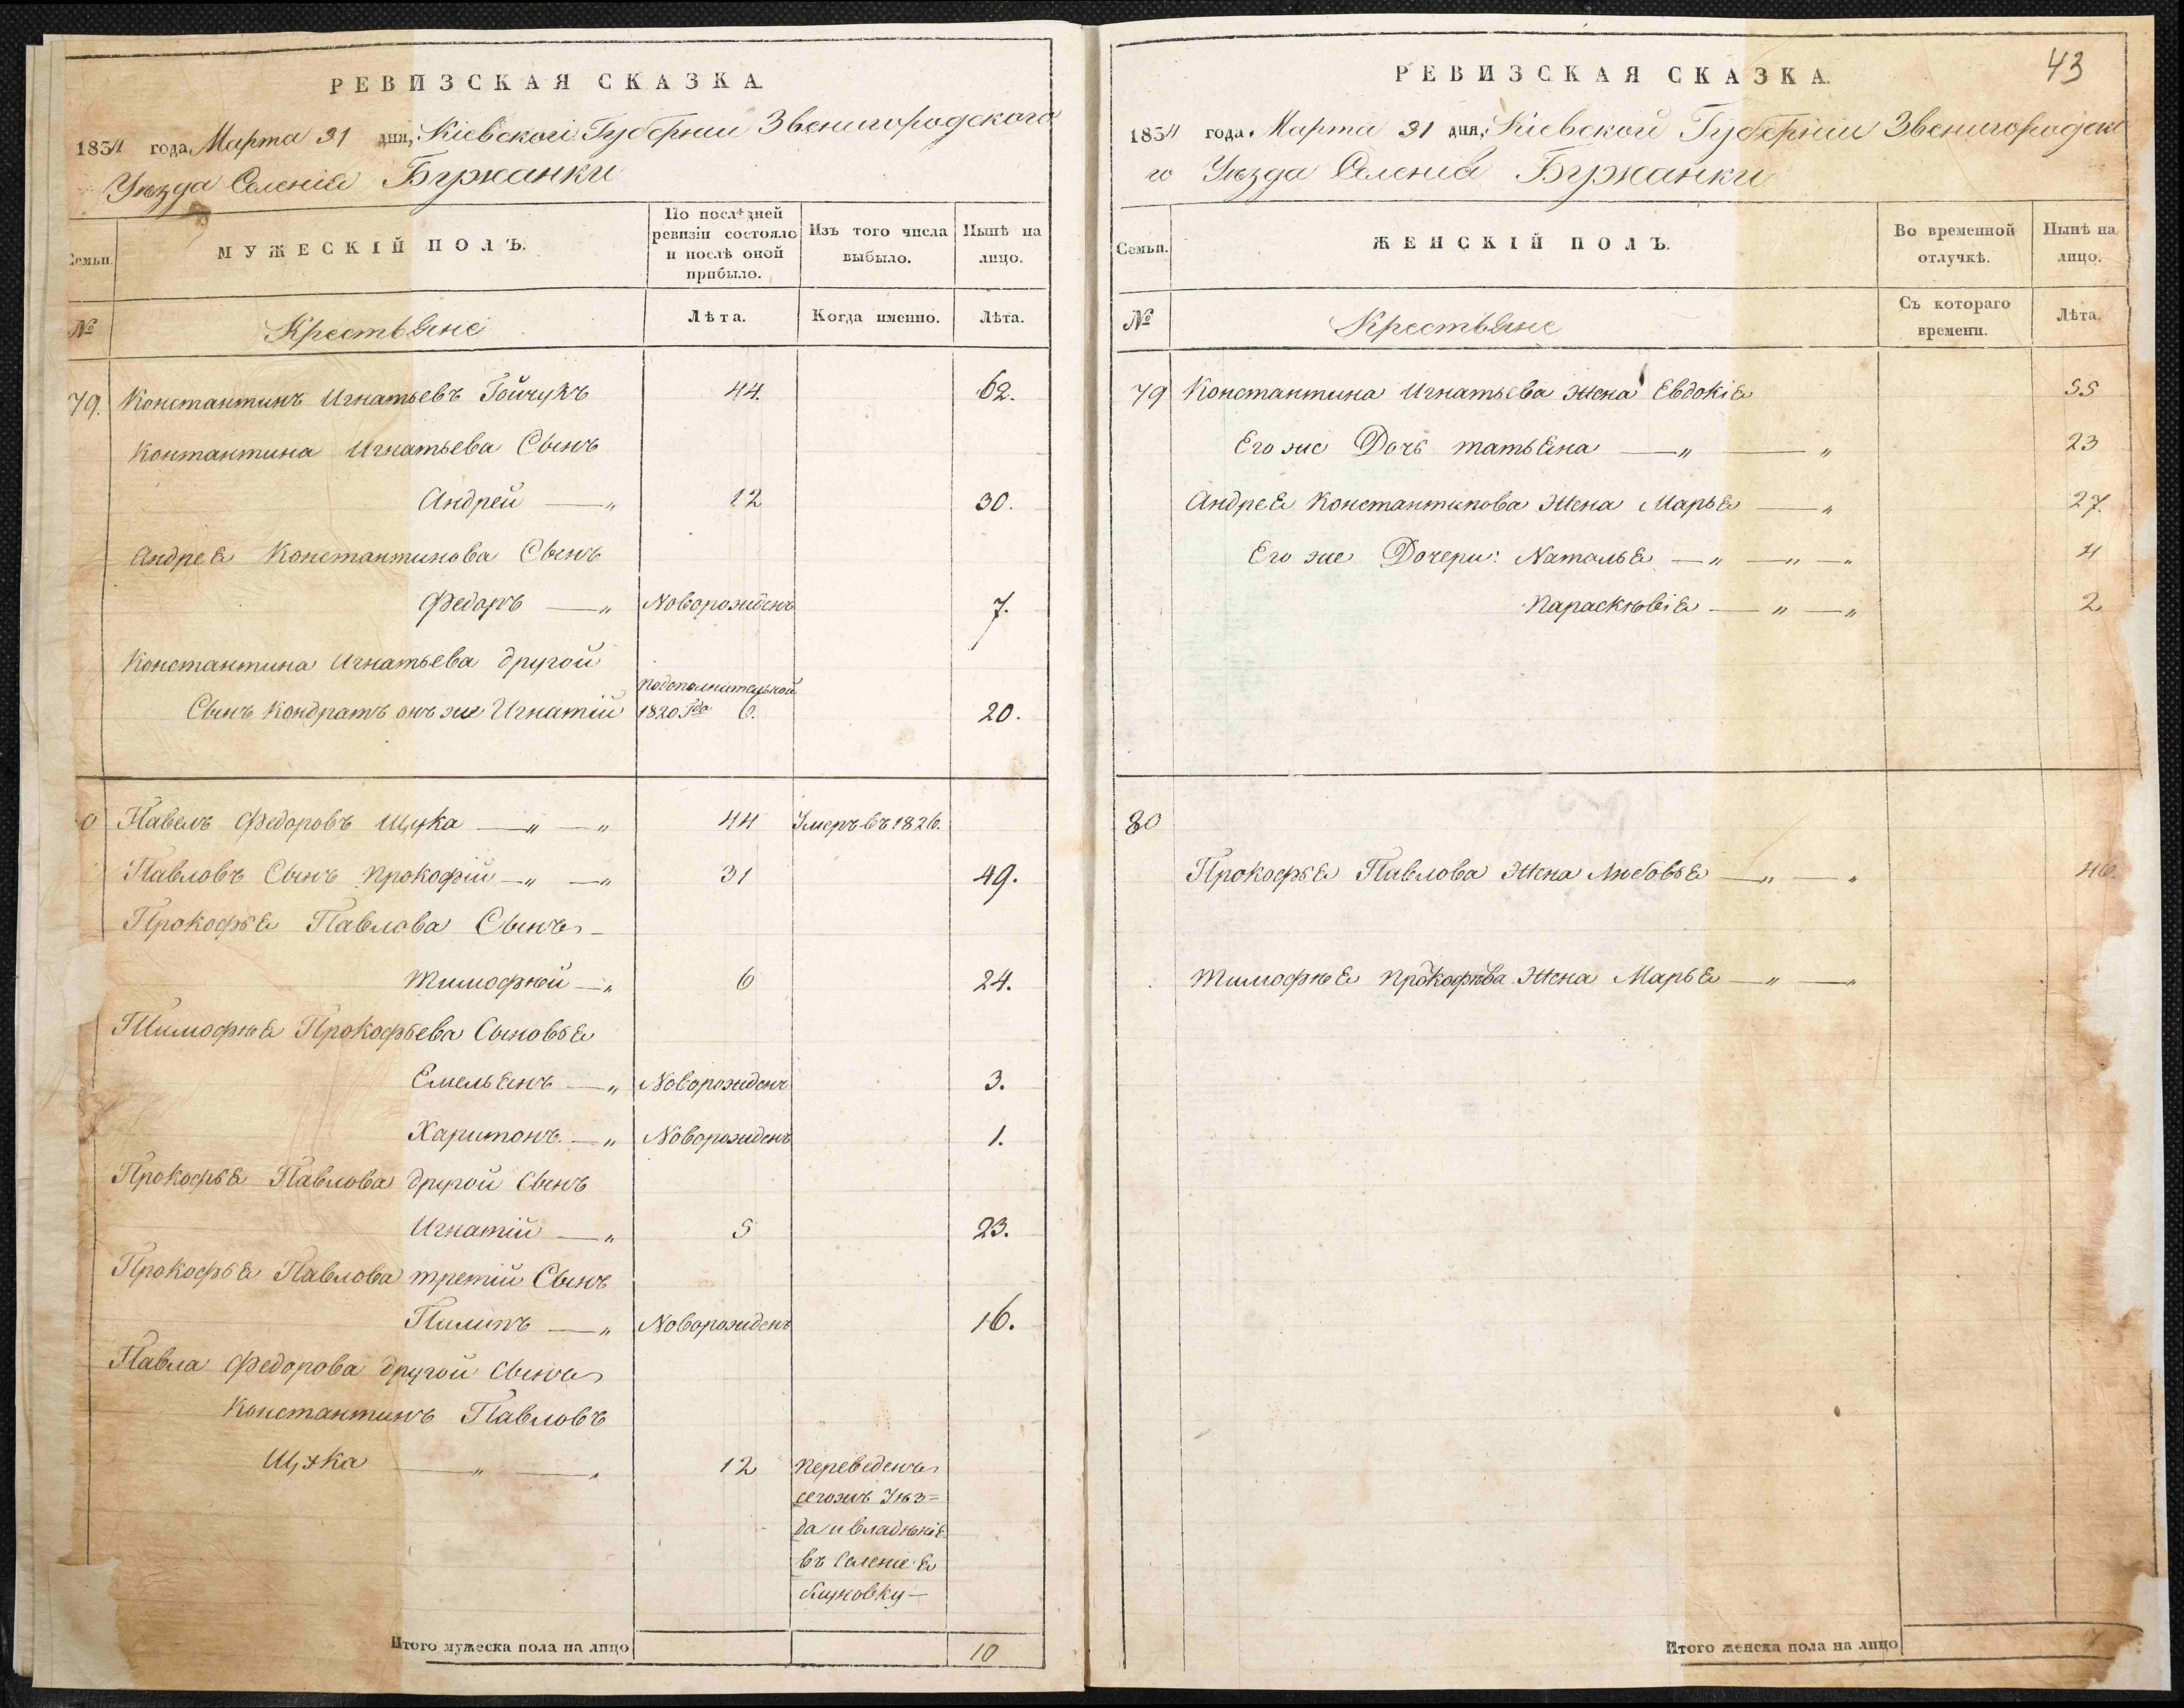 РЕВИЗСКАЯ СКАЗКА
1834 года Марта 31 дня, Кіевской Губерніи Звенигородскаго
Уѣзда Селенія Бужанки
Семьи.
МУЖЕСКІЙ ПОЛЪ.
По послѣдней ревизіи состояло и послѣ оной прибыло.
Изъ того числа выбыло.
Нынѣ на лицо.
№
Крестьяне
Лѣта.
Когда именно.
Лѣта.
79. Константинъ Игнатьевъ Гойчукъ 44. 62.
Контантина Игнатьева Сынъ
Андрей — „ 12 30.
Андрея Константинова Сынъ
Федоръ — „ Новорожденъ 7.
Константина Игнатьева другой
подополнительной
Сынъ Кондратъ онъ же Игнатій 1820 Года 6. 20.
0 Павелъ Федоровъ Щука — „ — „ 44 Умеръ въ 1826.
Павловъ Сынъ Прокофій — „ — „ 31 49.
Прокофья Павлова Сынъ
Тимофѣй — „ 6 24.
Тимофѣя Прокофьева Сыновья
Емельянъ — „ Новорожденъ 3.
Харитонъ — „ Новорожденъ 1.
Прокофья Павлова другой Сынъ
Игнатій — „ 5 23.
Прокофья Павлова третій Сынъ
Пилипъ — „ Новорожденъ 16.
Павла Федорова другой Сынъ
Константинъ Павловъ
Щука — „ — „ 12 переведенъ
сегожъ Уѣз=
да и владѣнія
въ Селеніе
Итого мужеска пола на лицо 10
43
РЕВИЗСКАЯ СКАЗКА.
1834 года Марта 31 дня, Кіевской Губерніи Звенигородска
го Уѣзда Селенія Бужанки
Семьи.
ЖЕНСКІЙ ПОЛЪ.
Во временной отлучкѣ.
Нынѣ на лицо.
№
Крестьяне
Съ котораго времени.
Лѣта.
79 Константина Игнатьева жена Евдокія 55
Его же Дочь татьяна — „ — „ 23
Андрея Константинова жена Марья — „ 27.
Его же Дочери: Наталья — „ — „ — „ 4
Параскѣвія — „ — „ 2
80
Прокофья Павлова Жена Любовья — „ — „ 46.
Тимофѣя Прокофѣва Жена Марья — „ — „
Итого женска пола на лицо 7